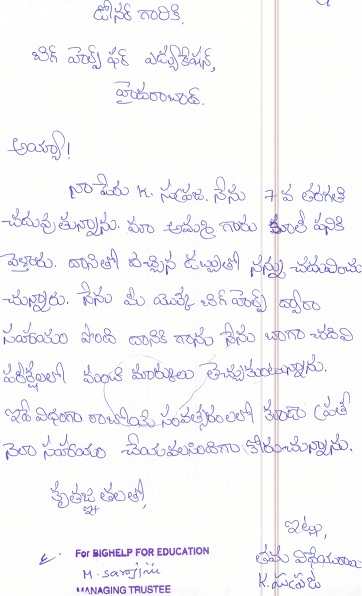 డోనర్ గారికి.
బిగ్ హెల్ప్ ఫర్ ఎడ్యుకేషన్,
హైదరాబాద్.
అయ్యా!
నా పేరు K. సుప్రజ. నేను 7 వ తరగతి
చదువుతున్నాను. మా అమ్మ గారు కూలి పనికి
వెళ్తారు. దానితో వచ్చిన డబ్బుతో నన్ను చదువించు
చున్నారు. నేను మీ యొక్క బిగ్ హెల్ప్ ద్వారా
సహాయం పొంది దానికి గాను నేను బాగా చదివి
పరీక్షలలో మంచి మార్కులు తెచ్చుకుంటున్నాను.
ఇదే విధంగా రాబోయే సంవత్సరాలలో కూడా ప్రతి
నెలా సహాయం చేయవలసిందిగా కోరుచున్నాను.
కృతజ్ఞతలతో,
ఇట్లు,
తమ విధేయురాలు
K. సుప్రజ
For BIGHELP FOR EDUCATION
M. Sarojini
MANAGING TRUSTEE